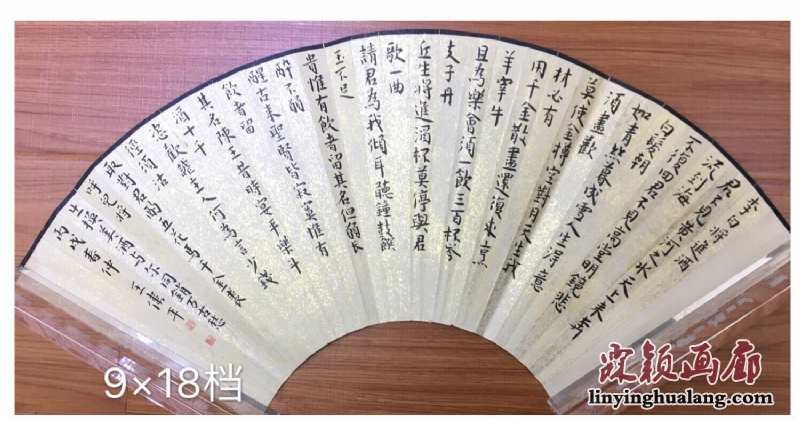 李白將進酒
君不見黄河之水天上来奔
流到海
不復回君不見高堂明鏡悲
白髮朝
如青丝暮成雪人生得意
須盡歡
莫使金樽空對月天生我
材必有
用千金散盡還復来烹
羊宰牛
且為樂會須一飲三百杯岑
夫子丹
丘生將進酒杯莫停與君
歌一曲
請君為我傾耳聽鐘鼓饌
玉不足
貴惟有飲者留其名但願長
醉不願
醒古来聖賢皆寂寞惟有
飲者留
其名陳王昔時宴平樂斗
酒十千
恣歡謔主人何為言少錢
徑須沽
取對君酌五花馬千金裘
呼兒將
出換美酒与尔同銷万古愁
丙戌春仲
9×18档
霖颖画廊
linyinghualang.com